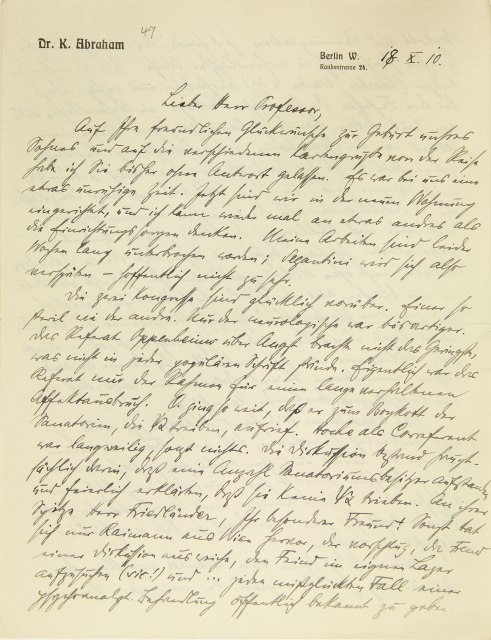 47.
Dr. K. Abraham
Berlin W. 18. X. 10.
Rankestrasse 24.
Lieber Herr Professor,
Auf Ihre freundlichen Glückwünsche zur Geburt unsres
Sohnes und auf die verschiedenen Kartengrüße von der Reise
habe ich Sie bisher ohne Antwort gelassen. Es war bei uns eine
etwas unruhige Zeit. Jetzt sind wir in der neuen Wohnung
eingerichtet, und ich kann wieder mal an etwas andres als
die Einrichtungssorgen denken. Meine Arbeiten sind leider
Wochen lang unterbrochen worden; Segantini wird sich also
verspäten – hoffentlich nicht zu sehr.
Die zwei Kongresse sind glücklich vorüber. Einer so
steril wie der andre. Nur der neurologische war bösartiger.
Das Referat Oppenheims über Angst brachte nicht das Geringste,
was nicht in jeder populären Schrift stünde. Eigentlich war das
Referat nur der Rahmen für einen lange verhaltenen
Affektausbruch. O. ging so weit, daß er zum Boykott der
Sanatorien, die ΨΑ treiben, aufrief. Hoche als Correferent
war langweilig, sonst nichts. Die Diskussion bestand haupt-
sächlich darin, daß eine Anzahl Sanatoriumsbesitzer aufstanden
und feierlich erklärten, daß sie keine ΨΑ trieben. An ihrer
Spitze Herr Friedländer, Ihr besonderer Freund. Sonst tat
sich nur Raimann aus Wien hervor, der vorschlug, da Freud
einer Diskussion ausweiche, den Feind im eignen Lager
aufzusuchen (sic!) und ... jeden mißglückten Fall einer
psychoanalyt. Behandlung öffentlich bekannt zu geben.